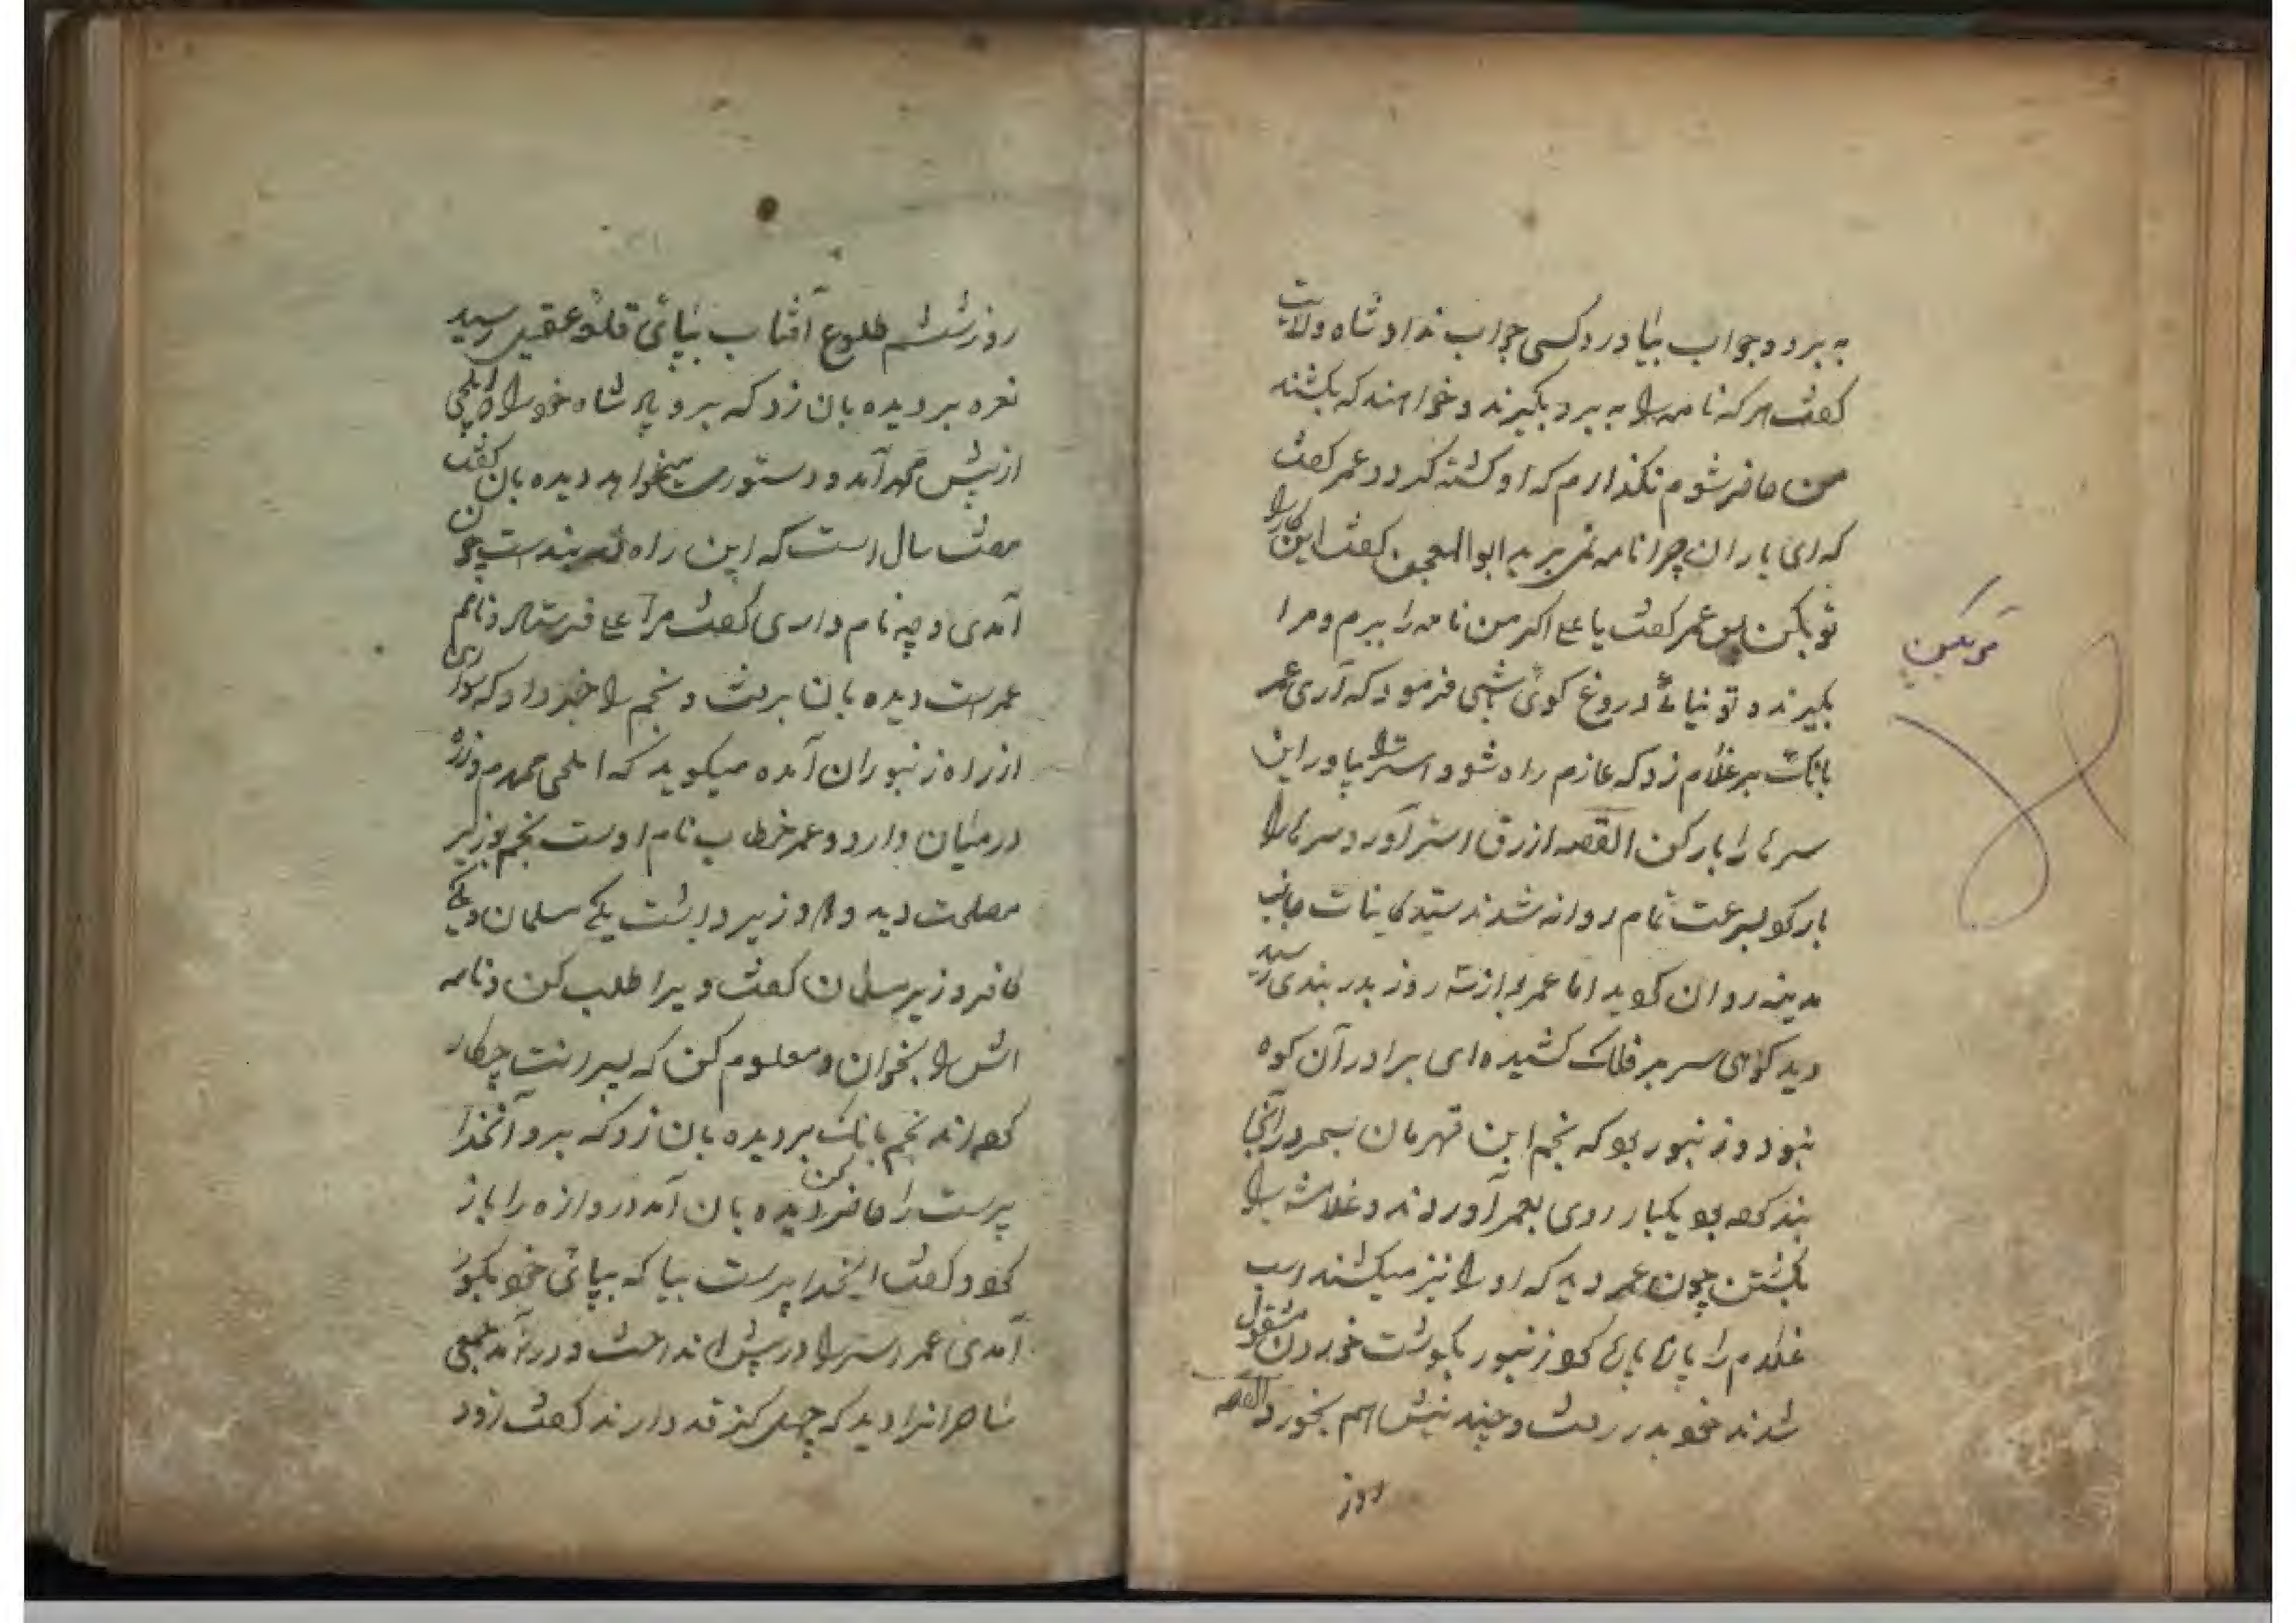 به برد و جواب بیاورد کسی جواب نداد شاه ولایت
گفت هر که نامه را به برد بگیرند و خواهند که بکشند
من حاضر شوم نگذارم که او کشته گردد عمر گفت
که ای یاران چرا نامه نمی برید ابوالمعجن گفت این کار را
تو بکن پس عمر گفت یا علی اگر من نامه را ببرم و مرا
بگیرند و تو نیائی دروغ گوئی شهی فرمود که آری عمر
بانگ بر غلام زد که عازم راه شو و استر را بیاور این
سرها را بار کن القصه ازرق استر آورد سرها را
بار کرد بسرعت تمام روانه شدند سید کاینات جانب
مدینه روان گردید اما عمر بعد از سه روز بدربندی رسید
دید کوهی سر بر فلک کشیده ای برادر آن کوه
نبود و زنبور بود که نجم ابن قهرمان بسحر در آنجا
بند کرده بود یکبار روی بعمر آوردند و غلامش را
بکشتن چون عمر دید که او را نیز میکشند اسب
غلام را پاره پاره کرد زنبور بگوشت خوردن مشغول
شدند خود بدر رفت و چند نیش هم بخورد القصه
روز
روز ششم طلوع آفتاب بپائی قلعه عقیق رسید
نعره بر دیده بان زد که برو پادشاه خود را بگو ایلچی
از پیش محمد آمد و دستوری میخواهد دیده بان گفت
هفت سال است که این راه بند است چون
آمدی و چه نام داری گفت مرا علی فرستاد و نامم
عمر است دیده بان برفت و نجم را خبر داد که سواری
از راه زنبوران آمده میگوید که ایلچی محمدم و زره
در میان دارد و عمر خطاب نام اوست نجم بوزیر
مصلحت دید و دو وزیر داشت یکی مسلمان و یکی
کافر وزیر مسلمان گفت ویرا طلب کن و نامه
اش را بخوان و معلوم کن که پسرانت چکار
کرده اند نجم بانگ بر دیده بان زد که برو آنخدا
پرست را حاضر کن دیده بان آمد دروازه را باز
کرد و گفت ایخدا پرست بیا که بپائی خود بگور
آمدی عمر استر را در پیش انداخت و در آمد جمعی
ساحرانرا دید که چهل گز قد دارند گفت زود